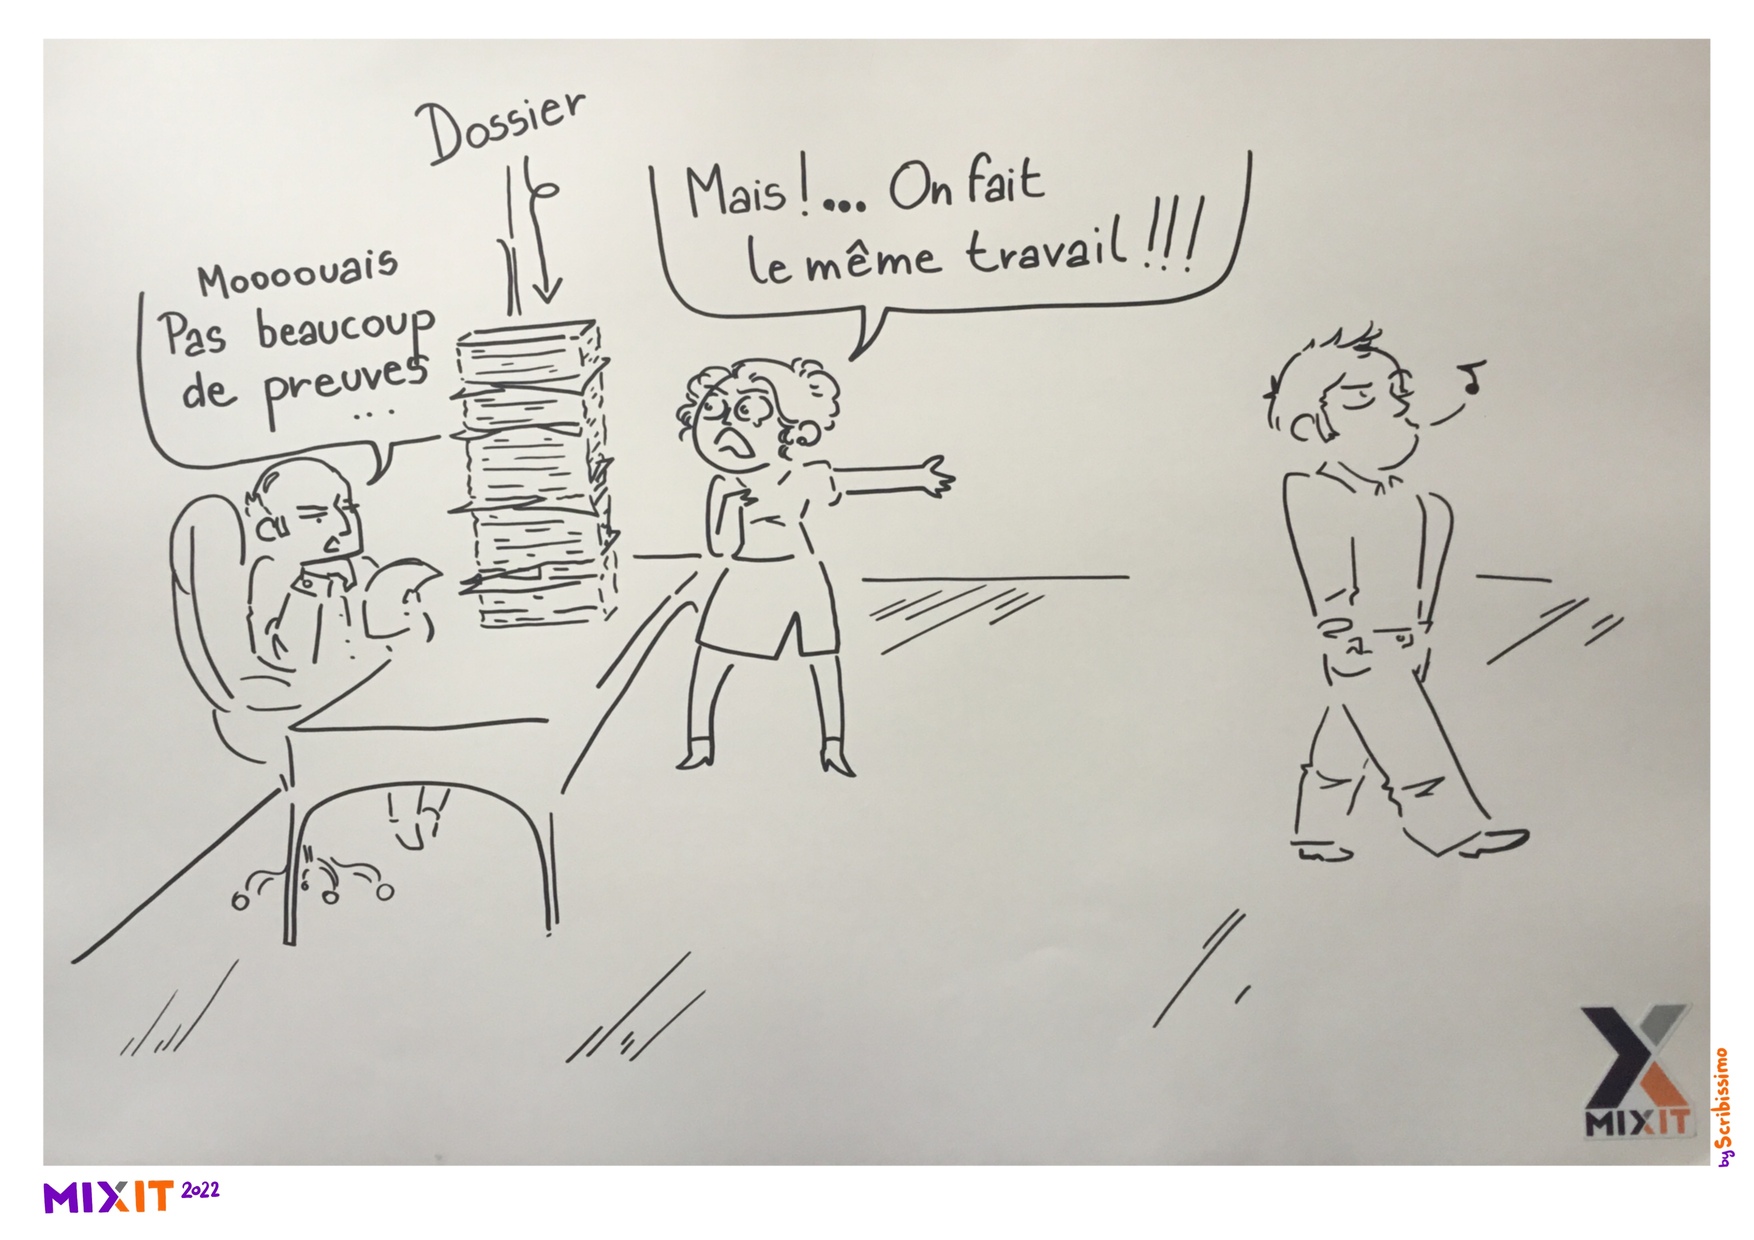 Dossier
Moooouais
Pas beaucoup
de preuves
...
Mais!... On fait
le même travail!!!
MIXIT
by Scribissimo
MIXIT 2022